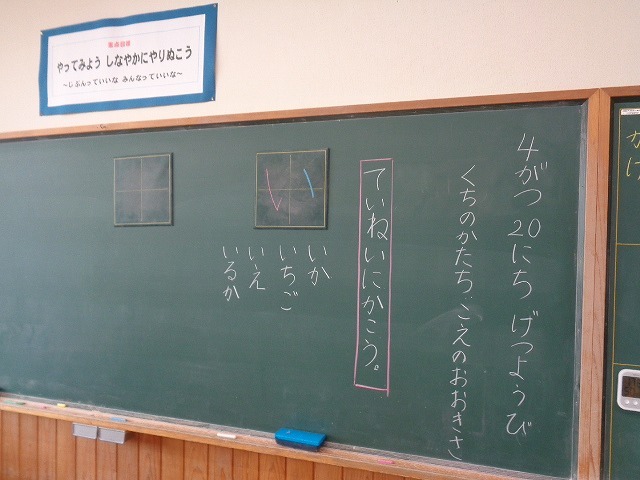 重点目標
やってみよう しなやかにやりぬこう
～じぶんっていいな みんなっていいな～
4がつ 20にち げつようび
くちのかたち、こえのおおきさ
ていねいにかこう。
い
いか
いちご
いえ
いるか